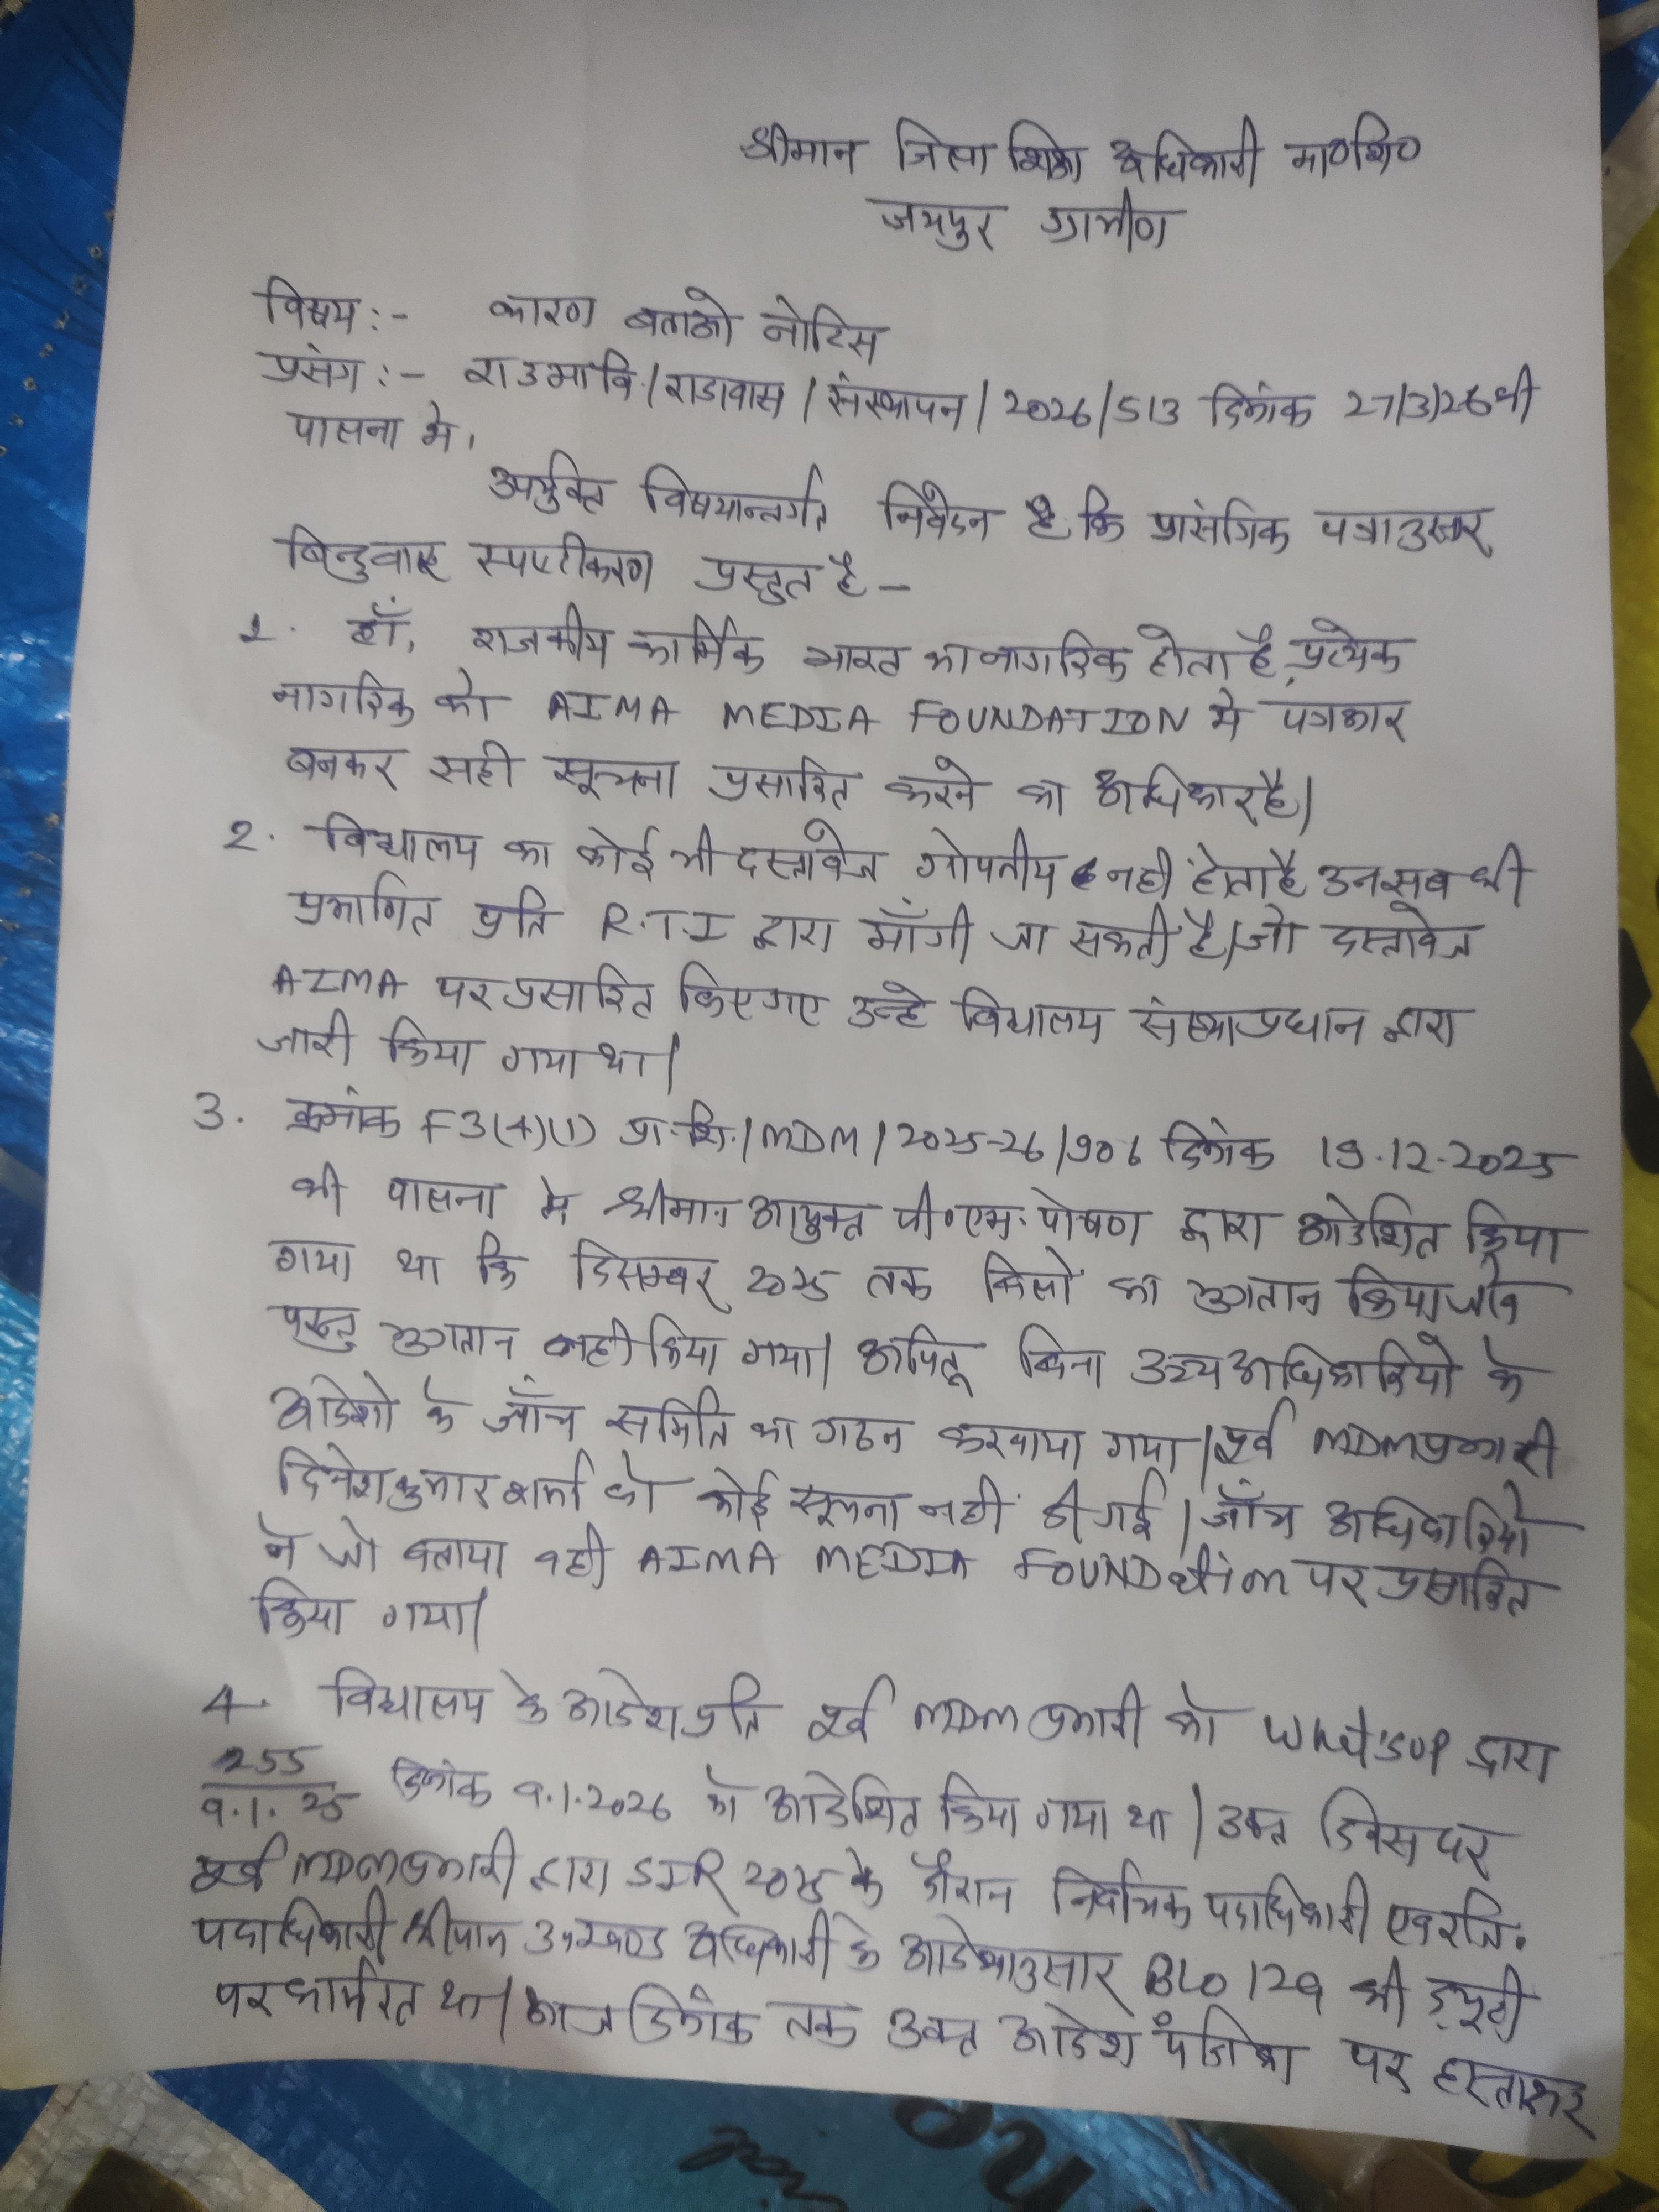 श्रीमान जिला शिक्षा अधिकारी मा०शि०
जयपुर ग्रामीण
विषय :- कारण बताओ नोटिस
प्रसंग :- राउमावि / राडावास / संस्थापन / 2026/513 दिनांक 27/3/26 की
पालना मे।
उपर्युक्त विषयान्तर्गत निवेदन है कि प्रासंगिक पत्रानुसार
बिन्दुवार स्पष्टीकरण प्रस्तुत है –
1. हाँ, राजकीय कार्मिक भारत का नागरिक होता है, प्रत्येक
नागरिक को AIMA MEDIA FOUNDATION मे पत्रकार
बनकर सही सूचना प्रसारित करने का अधिकार है।
2. विद्यालय का कोई भी दस्तावेज गोपनीय नही होता है उन सब की
प्रमाणित प्रति R.T.I द्वारा माँगी जा सकती है। जो दस्तावेज
AIMA पर प्रसारित किए गए उन्हे विद्यालय संस्थाप्रधान द्वारा
जारी किया गया था।
3. क्रमांक F3(4)(1) प्रा.शि./MDM/2025-26/906 दिनांक 19.12.2025
की पालना मे श्रीमान आयुक्त पी०एम. पोषण द्वारा आदेशित किया
गया था कि दिसम्बर 2025 तक बिलो का भुगतान किया जावे
परन्तु भुगतान नही किया गया। अपितू बिना उच्च अधिकारियो के
आदेशो के जाँच समिति का गठन करवाया गया। पूर्व MDM प्रभारी
दिनेश कुमार शर्मा को कोई सूचना नही दी गई। जाँच अधिकारियो
ने जो बताया वही AIMA MEDIA FOUNDation पर प्रसारित
किया गया।
4. विद्यालय के आदेश प्रति पूर्व MDM प्रभारी को What'sup द्वारा
255
9.1.25 दिनांक 9.1.2026 को आदेशित किया गया था। उक्त दिवस पर
पूर्व MDM प्रभारी द्वारा SIR 2025 के दौरान निर्वाचक पदाधिकारी एवं रजि.
पदाधिकारी श्रीमान उपखण्ड अधिकारी के आदेशानुसार BLO 129 की ड्यूटी
पर कार्यरत था। आज दिनांक तक उक्त आदेश पंजिका पर हस्ताक्षर